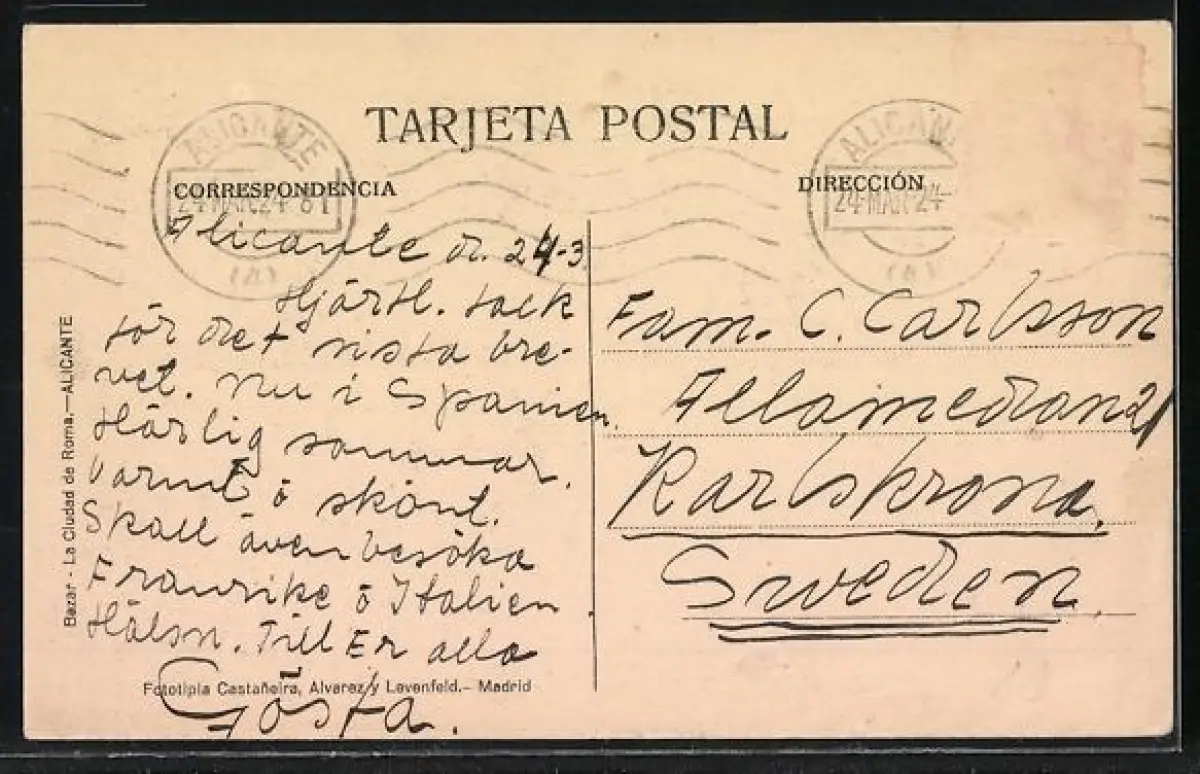 TARJETA POSTAL
ALICANTE
24 MAR. 24 61
(4)
CORRESPONDENCIA
Alicante d. 24-3
Hjärtl. tack
för det sista bre-
vet. Nu i Spanien.
Härlig sommar.
Varmt o skönt.
Skall även besöka
Frankrike o Italien.
Hälsn. Till Er alla
Gösta.
Bazar - La Ciudad de Roma.—ALICANTE
Fototipia Castañeira, Alvarez y Levenfeld.- Madrid
ALICAN
24 MAR 24
DIRECCIÓN
Fam. C. Carlsson
Allamedan 21
Karlskrona.
Sweden.